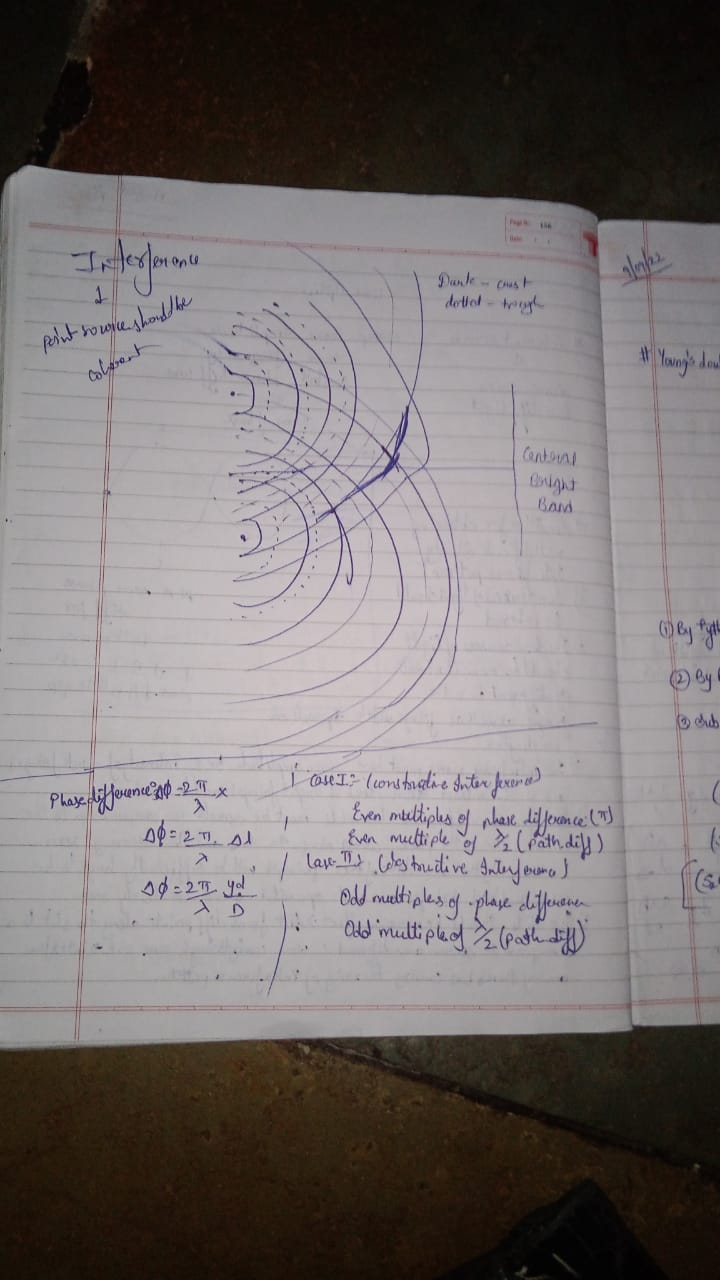 Interference
1
point source should be
coherent
Dark - crest
dotted - trough
Page No. 156
Date:
Central
Bright
Band
Phase difference: Δϕ = 2π/λ x
Δϕ = 2π/λ . Δl
Δϕ = 2π/λ yd/D
Case I:- (constructive Interference)
Even multiples of phase difference (π)
Even multiple of λ/2 (path diff)
Case-II: (destructive Interference)
Odd multiples of phase difference
Odd multiple of λ/2 (path diff)
# Young's dou
(1) By Pyth
(2) By
(3) Sub